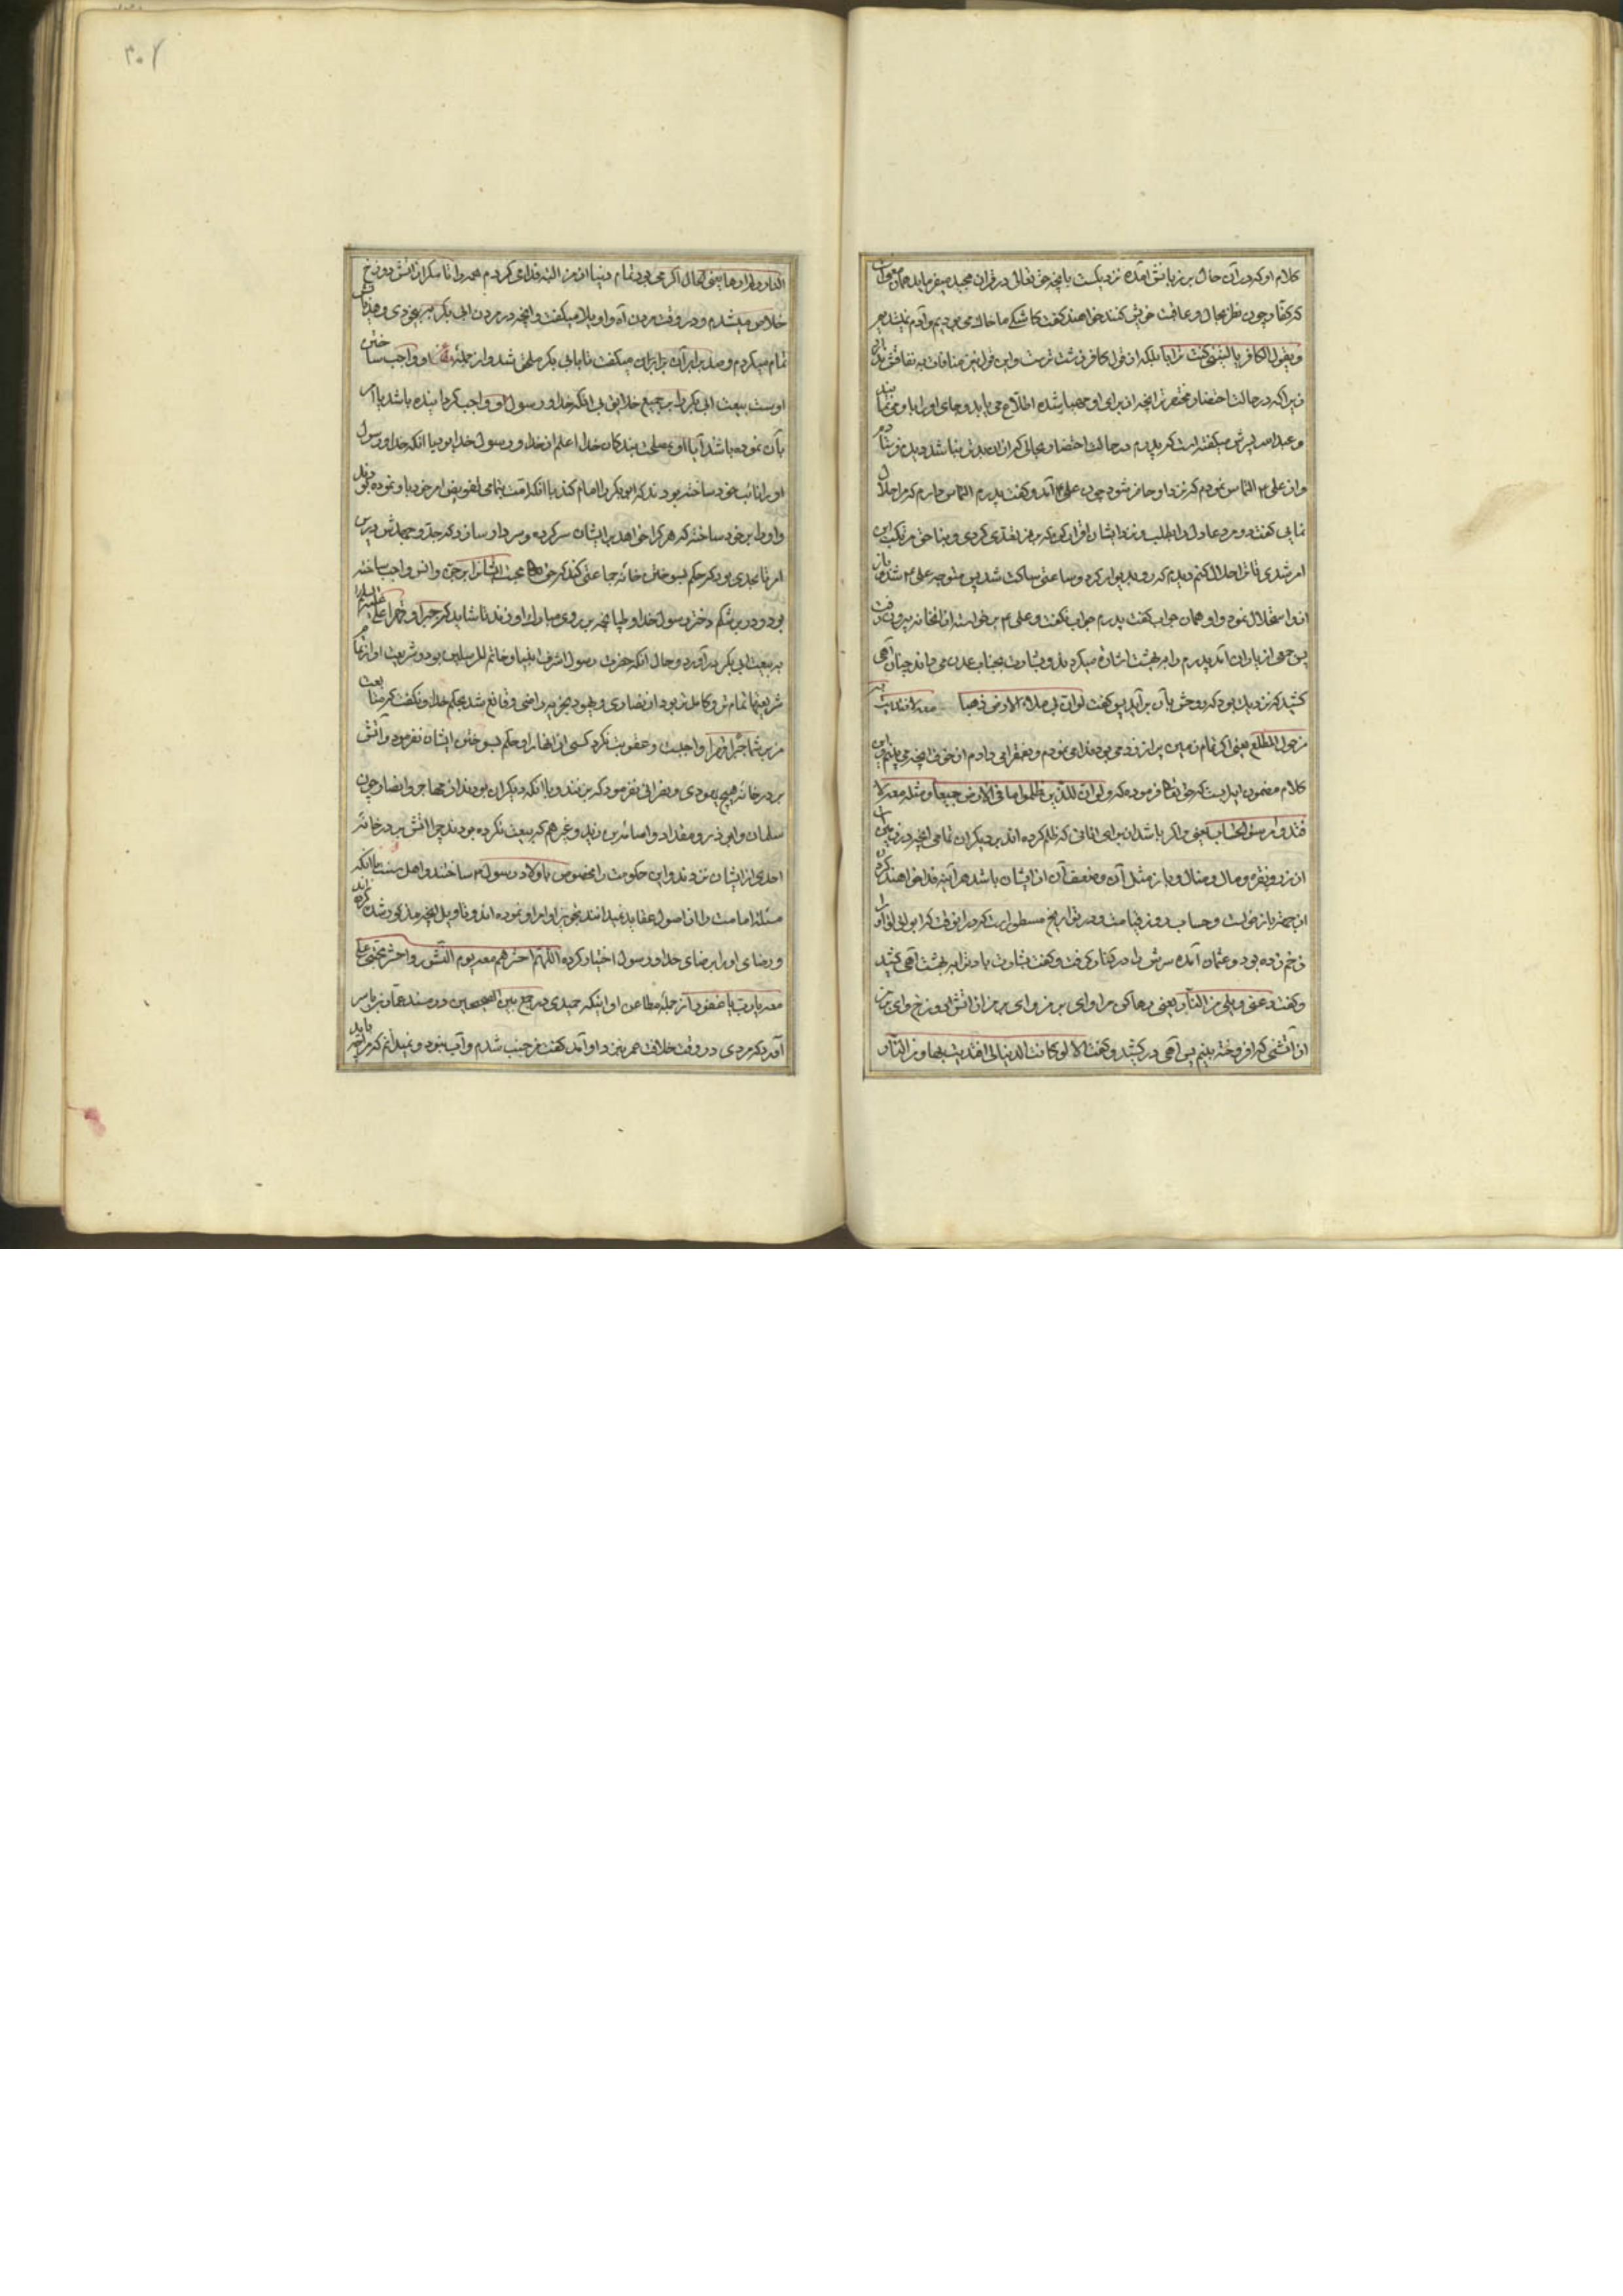 کلام او که در آن حال بر زبانش آمده نزدیکست بانچه حق تعالی در قران مجید میفرماید همان
که کفار چون نظر بحال و عاقبت خویش کنند خواهند گفت کاشکی ما خاک می بودیم و آدم نمیشدیم
و یقول الکافر یا لیتنی کنت ترابا بلکه از قول کافر
زیرا که در حالت احتضار محتضر را انچه از برای او مهیا شده اطلاع می یابد و جای او را باو می نمایند
و عبدالله پسرش میگفته است که پدرم در حالت احتضار
و از علی ۴ التماس نمودم که نزد او حاضر شود چون علی ۴ آمد و گفت پدرم التماس دارم که مرا حلال
نمایی گفت دو مرد عادل را بطلب و نزد ایشان اقرار کن که بر من تعدی کردی و بناحق مرتکب این
امر شدی تا ترا حلال کنم پدرم که رو بدیوار کرد و ساعتی ساکت شد پس متوجه علی ۴ شد و باز
از او استحلال نمود و او همان جواب گفت پدرم جواب نگفت و علی ۴ برخواست از آنخانه بیرون رفت
پس جمعی از یاران آمد پدرم را ببهشت اشاره میکردند و بشارت بجنات عدن می دادند چنان آهی
کشید که نزدیک بود که روحش بآن برآید پس گفت لو ان لی ملاء الارض ذهبا معه لافتدیت به
من هول المطلع یعنی اگر تمام زمین پر از زر می بود فدا می نمودم و بفقرا می دادم از خوف انچه می بینم و این
کلام مضمون آیه ایست که حق تعالی فرموده که ولو ان للذین ظلموا ما فی الارض جمیعا و مثله معه لا
فتدوا من سوء العذاب یعنی و اگر باشد از برای انانی که ظلم کرده اند بر دیگران تمامی انچه در زمین است
از زر و نقره و مال و منال و باز مثل آن و ضعف آن از ایشان باشد هر آینه فدا خواهند کرد
و حساب روز قیامت و در تواریخ مسطور است که در انوقت که ابو لولو او را
زخم زده بود و عثمان آمده سرش را در کنار گرفت و گفت بشارت باد ترا ببهشت آهی کشید
و گفت دعنی ویلی من النار یعنی رها کن مرا وای بر من وای بر من از آتش دوزخ وای بر من
از آتشی که افروخته بینم پس آهی در کشید و گفت الا لو کانت الدنیا لی افتدیت بها من النار
النار ولم ارها یعنی اگر می بود تمام دنیا از من البته فدا می کردم همه را تا مگر از آتش دوزخ
خلاص میشدم و در وقت مردن آه و اویلا میگفت و انچه در مردن ابی بکر
تمام میکردم و صد برابر آن میگفت تا بابی بکر ملحق شد و از جمله او واجب ساختن
اوست بیعت ابی بکر را بر جمیع خلایق بی آنکه خدا و رسول او واجب کرده باشد یا امر
بآن نموده باشد آیا او بمصلحت بندگان خدا اعلم از خدا و رسول خدا بود یا آنکه خدا و رسول
او را نایب خود ساخته بودند که ابی بکر را امام کند یا آنکه امت تمامی تفویض امر خود باو نموده بودند
و او را بر خود ساخته که هر کرا خواهد بر ایشان سرکرده و سردار سازد
امر تا بحدی بود که حکم بسوختن خانه جماعتی کند که حق تعالی محبت ایشان را بر جن و انس واجب ساخته
بود و در بر شکم دختر رسول خدا
به بیعت ابی بکر در آورد و حال آنکه حضرت رسول اشرف انبیا و خاتم المرسلین بود و شریعت او از تمام
شریعتها تمام تر و کامل تر بود از نصاری و یهود بجزیه راضی و قانع شد بحکم خدا و نگفت که متابعت
من بر شما جبرا و قهرا واجبست و عقوبت نکرد کسی از انها را و حکم بسوختن ایشان نفرمود و آتش
بر در خانه هیچ یهودی و نصرانی نفرمود که بزنند و با آنکه دیگران بودند از مهاجر و انصار چون
سلمان و ابی ذر و مقداد و اسامة بن زید و غیرهم که بیعت نکرده بودند چرا آتش بر در خانه
احدی از ایشان نزدند و این حکومت را مخصوص باولاد رسول ۴ ساختند و اهل سنت با آنکه
مسئله امامت را از اصول عقاید نمیدانند
و رضای او را بر رضای خدا و رسول اختیار کرده اللهم احشرهم معه یوم النشور و احشر محبی علی
معه یا رب یا غفور از جمله مطاعن او اینکه حمیدی در جمع بین الصحیحین در مسند عمار بن یاسر
آورده که مردی در وقت خلافت عمر بنزد او آمد گفت من جنب شدم و آب نبود و نمیدانم که مرا چه باید